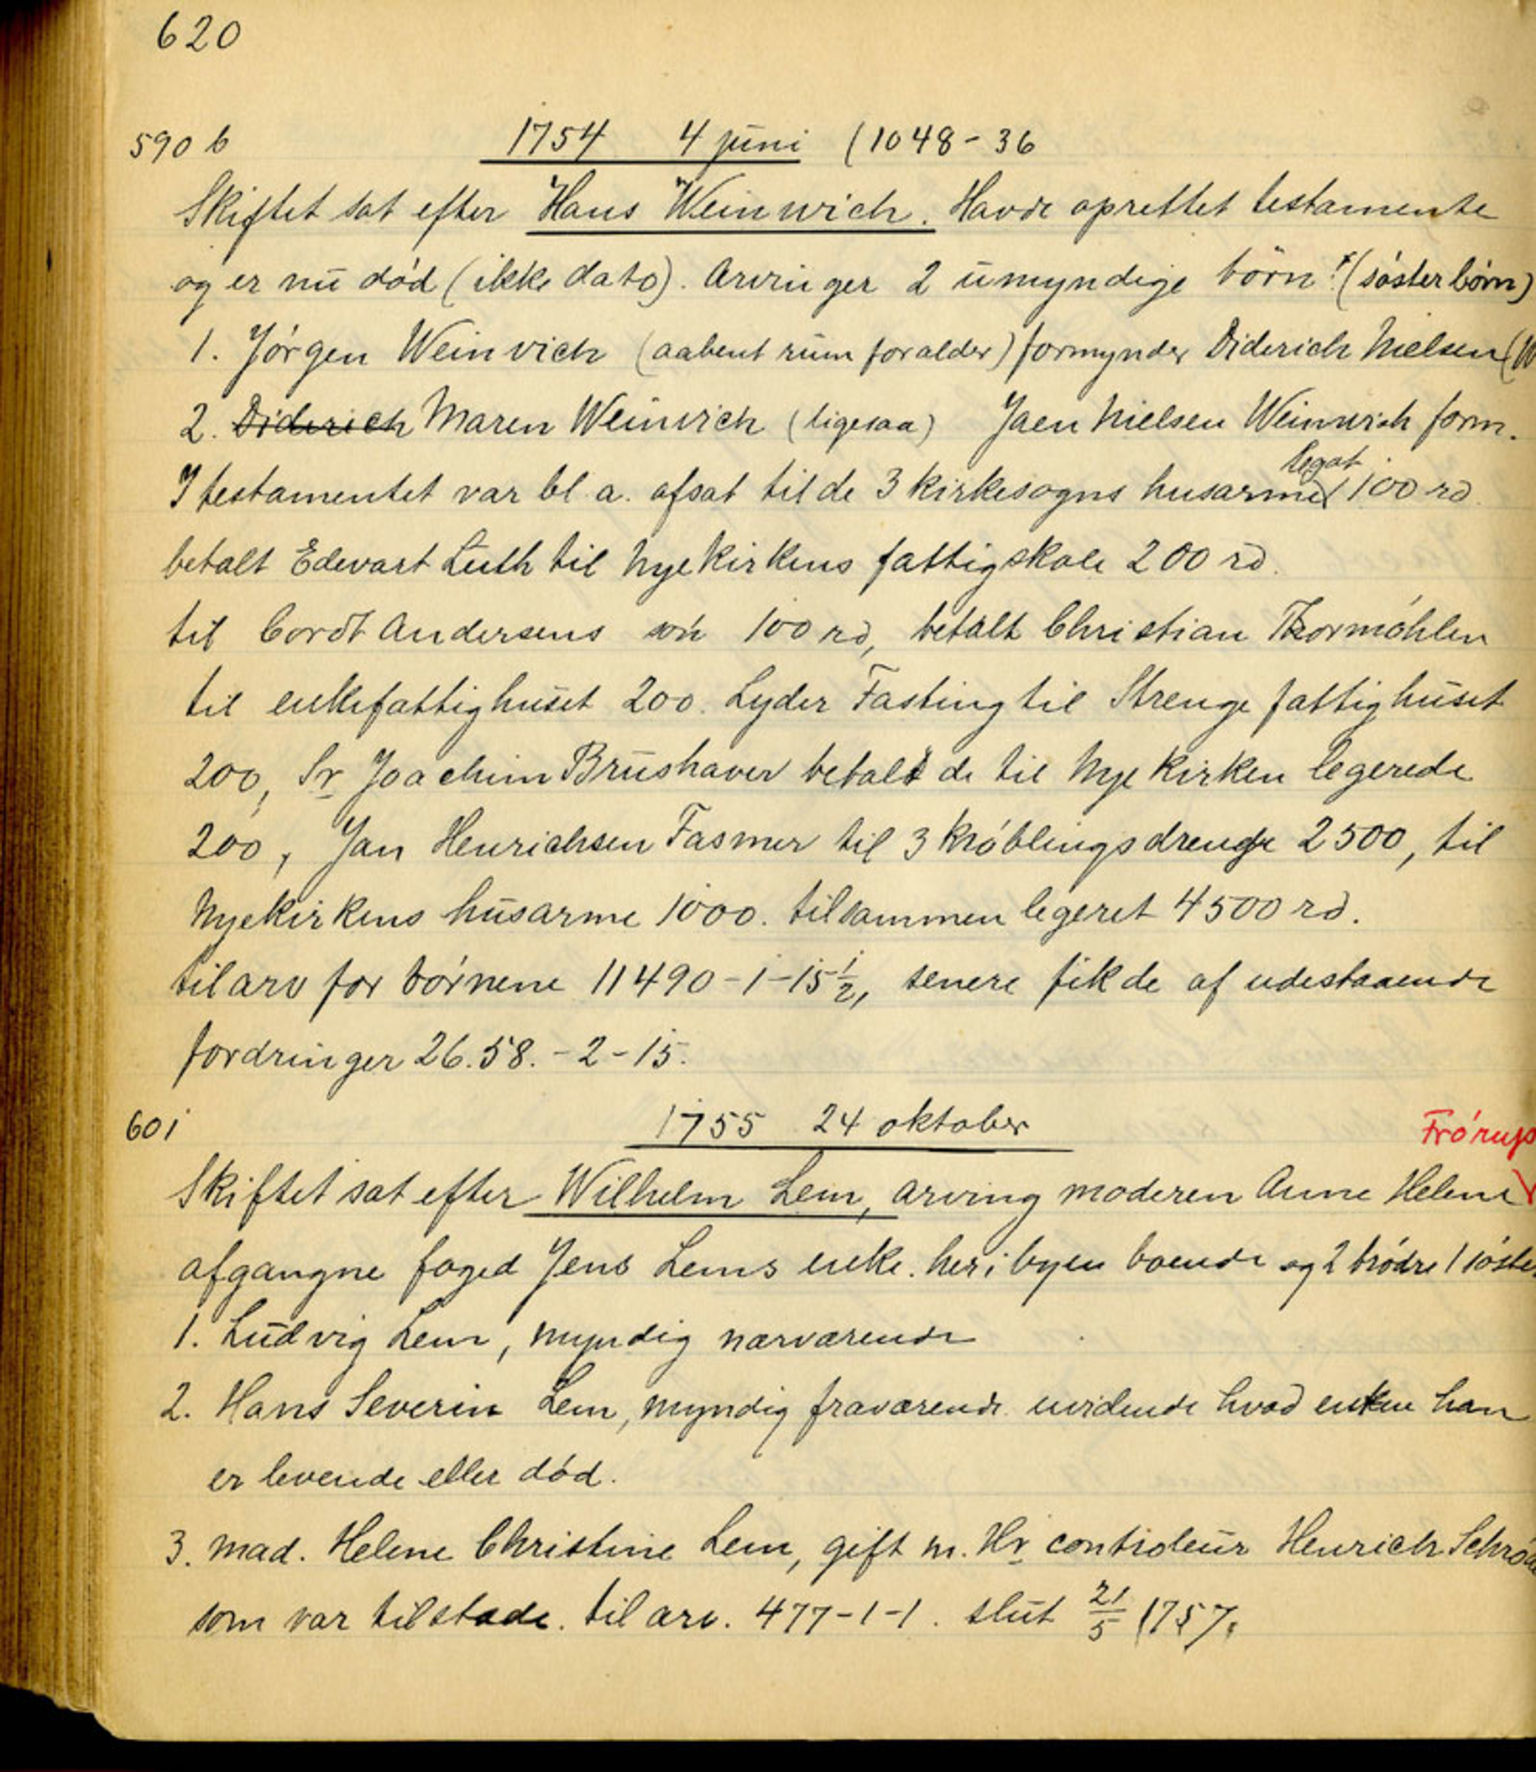 620
590 b 1754 4 juni (1048-36
Skiftet sat efter Hans Weinwich. Havde oprettet testamente
og er nu død (ikke dato). Arvinger 2 umyndige börn? (søsterbörn)
1. Jørgen Weinvich (aabent rum for alder) formynder Diderich Nielsen (W
2. Diderich Maren Weinvich (ligesaa) Jaen Nielsen Weinwich form.
I testamentet var bl. a. afsat til de 3 kirkesogns husarme legat 100 rd.
betalt Edevart Luth til Nyekirkens fattigskole 200 rd.
til Cordt Andersens søn 100 rd, betalt Christian Thormøhlen
til enkefattighuset 200. Lyder Fasting til Strenge fattighuset
200, Sr Joachim Brushaver betalt de til Nyekirken legerede
200, Jan Henrichsen Fasmer til 3 krøblingsdrenge 2500, til
Nyekirkens husarme 1000. tilsammen legeret 4500 rd.
til arv for børnene 11490-1-15½, senere fik de af udestaaende
fordringer 26.58.-2-15.
601 1755 24 oktober Frørup
Skiftet sat efter Wilhelm Lem, arving moderen Anne Helene
afgangne foged Jens Lems enke. her i byen boende og 2 brødre 1 søster
1. Ludvig Lem, myndig nærværende
2. Hans Severin Lem, myndig fraværende uvidende hvad enten han
er levende eller død.
3. mad. Helene Christine Lem, gift m. Hr controleur Henrich Schrøde
som var tilstade. til arv. 477-1-1. slut 21/5 1757.